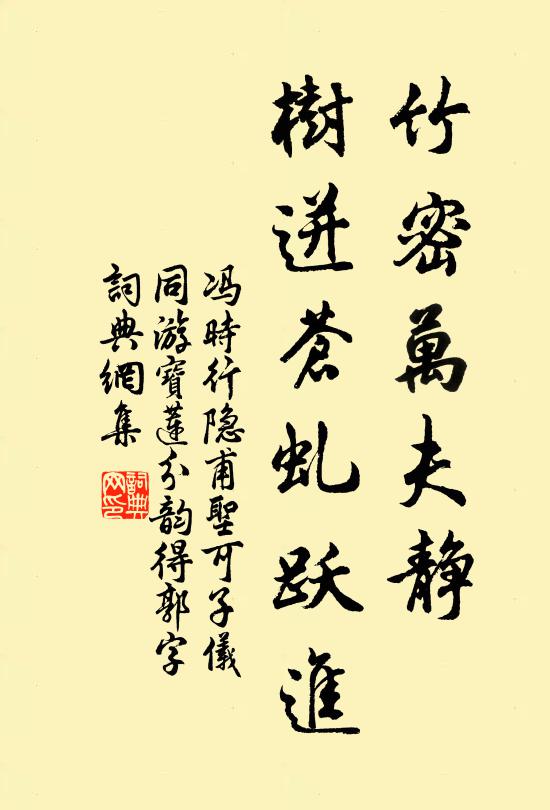 竹密萬夫静
樹迸蒼虬跃進
冯時行隐甫聖可子儀
同游寶蓮分韵得郭字
詞典網集
詞典
网印